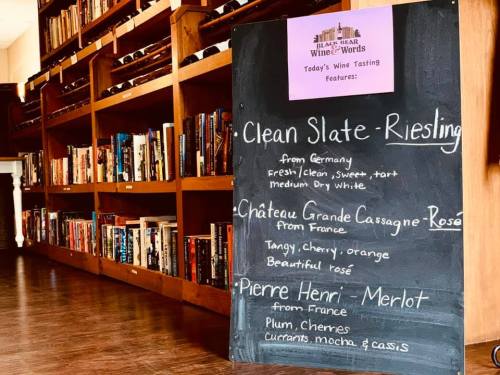 BLACK BEAR
Wine & Words
Today's Wine Tasting
Features:
Clean Slate - Riesling
from Germany
Fresh/clean, sweet, tart
medium Dry white
Château Grande Cassagne - Rosé
from France
Tangy, cherry, orange
Beautiful rosé
Pierre Henri - Merlot
from France
Plum, Cherries
Currants, mocha & cassis